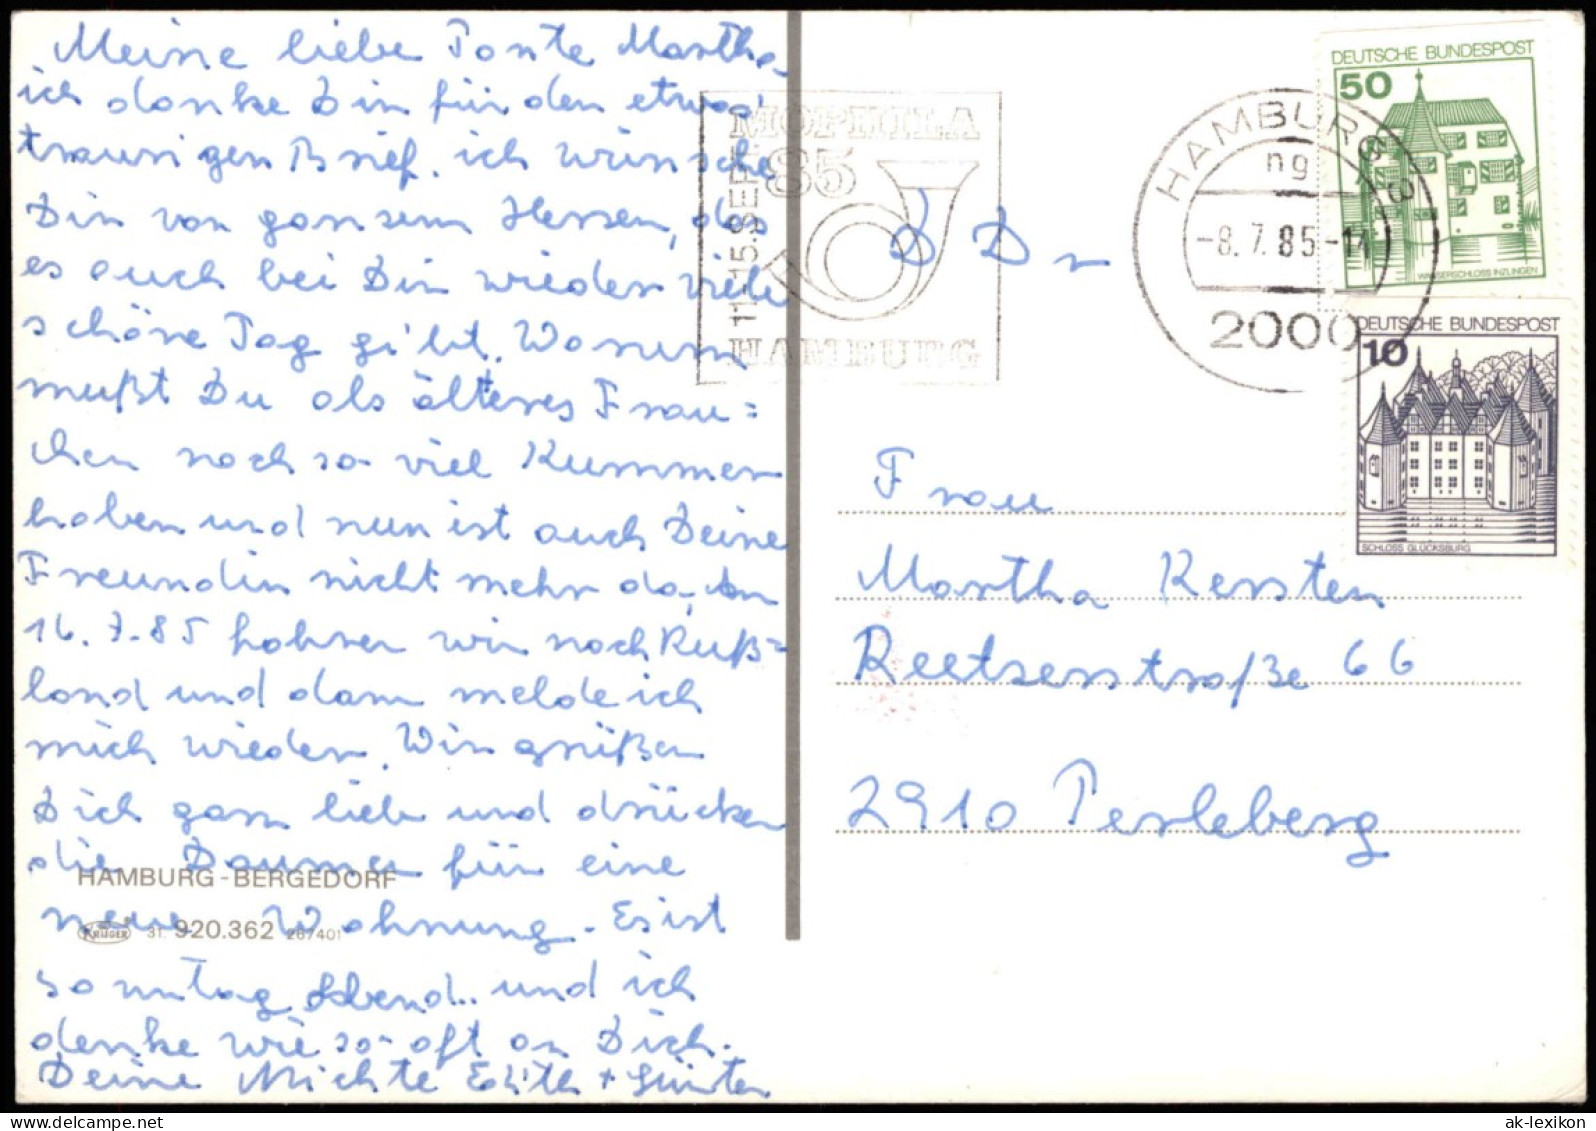 Meine liebe Tante Martha,
ich danke Dir für den etwas
traurigen Brief. ich wünsche
Dir von ganzem Herzen, das
es auch bei Dir wieder viele
schöne Tag gibt. Warum
mußt Du als älteres Frau=
chen noch so viel Kummer
haben und nun ist auch Deine
Freundin nicht mehr da. Am
16.7.85 fahren wir nach Ruß=
land und dann melde ich
mich wieder. Wir grüßen
Dich ganz lieb und drücken
die Daumen für eine
HAMBURG-BERGEDORF
neue Wohnung. Es ist
KRÜGER 31. 920.362 267401
Sonntag Abend.. und ich
denke wie so oft an Dich.
Deine Nichte Edith + Günter
11.-15.SEPT.
MOPHILA
85
HAMBURG
HAMBURG
ng
-8.7.85-17
2000
DEUTSCHE BUNDESPOST
50
WASSERSCHLOSS INZLINGEN
DEUTSCHE BUNDESPOST
10
SCHLOSS GLÜCKSBURG
DDR
Frau
Martha Kersten
Reetzerstraße 66
2910 Perleberg
ak-lexikon.com